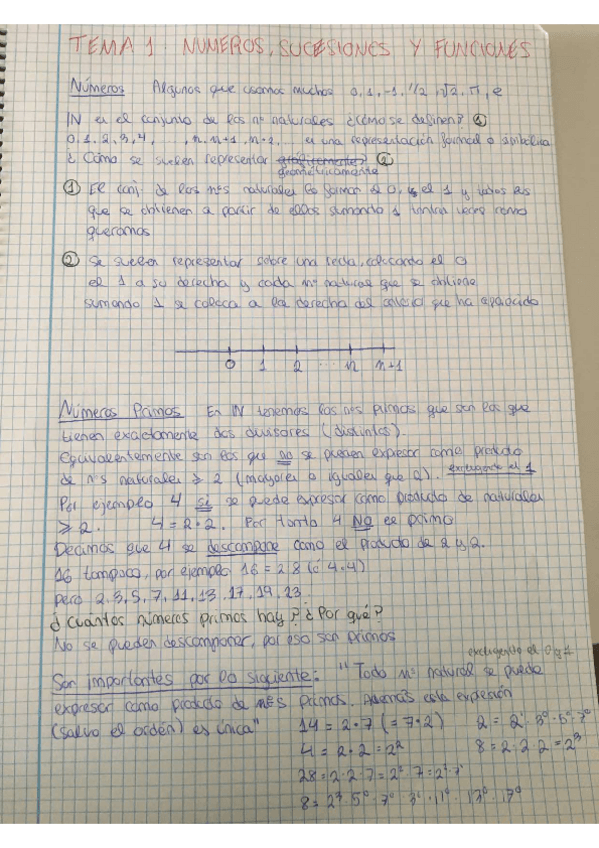 TEMA 1: NUMEROS, SUCESIONES Y FUNCIONES
Números Algunos que usamos muchos 0, 1, -1, 1/2, √2, π, e
IN es el conjunto de los nº naturales ¿cómo se definen? ①
0, 1, 2, 3, 4, , n, n+1, n+2, ... es una representación formal o simbólica
¿Cómo se suelen representar geométricamente? ②
① El conj. de los nºs naturales lo forman el 0, el 1 y todos los
que se obtienen a partir de ellos sumando 1 tantas veces como
queramos
② Se suelen representar sobre una recta, colocando el 0
el 1 a su derecha y cada nº natural que se obtiene
sumando 1 se coloca a la derecha del que ha aparecido
0 1 2 ... n n+1
Números Primos En IN tenemos los nºs primos que son los que
tienen exactamente dos divisores (distintos).
Equivalentemente son los que no se pueden expresar como producto
de nºs naturales ⩾ 2 (mayores o iguales que 2). excluyendo el 1
Por ejemplo 4 sí se puede expresar como producto de naturales
⩾ 2. 4 = 2·2. Por tanto 4 No es primo
Decimos que 4 se descompone como el producto de 2 y 2.
16 tampoco, por ejemplo 16 = 2·8 (ó 4·4)
pero 2, 3, 5, 7, 11, 13, 17, 19, 23
¿Cuántos números primos hay? ¿Por qué?
No se pueden descomponer, por eso son primos
excluyendo el 0 y 1
Son importantes por lo siguiente: "Todo nº natural se puede
expresar como producto de nºs primos. Además esta expresión
(salvo el orden) es única"
14 = 2·7 (= 7·2) 2 = 2¹·3⁰·5⁰·7⁰
4 = 2·2 = 2² 8 = 2·2·2 = 2³
28 = 2·2·7 = 2²·7 = 2²·7¹
8 = 2³·5⁰·7⁰·3⁰·11⁰·13⁰·17⁰